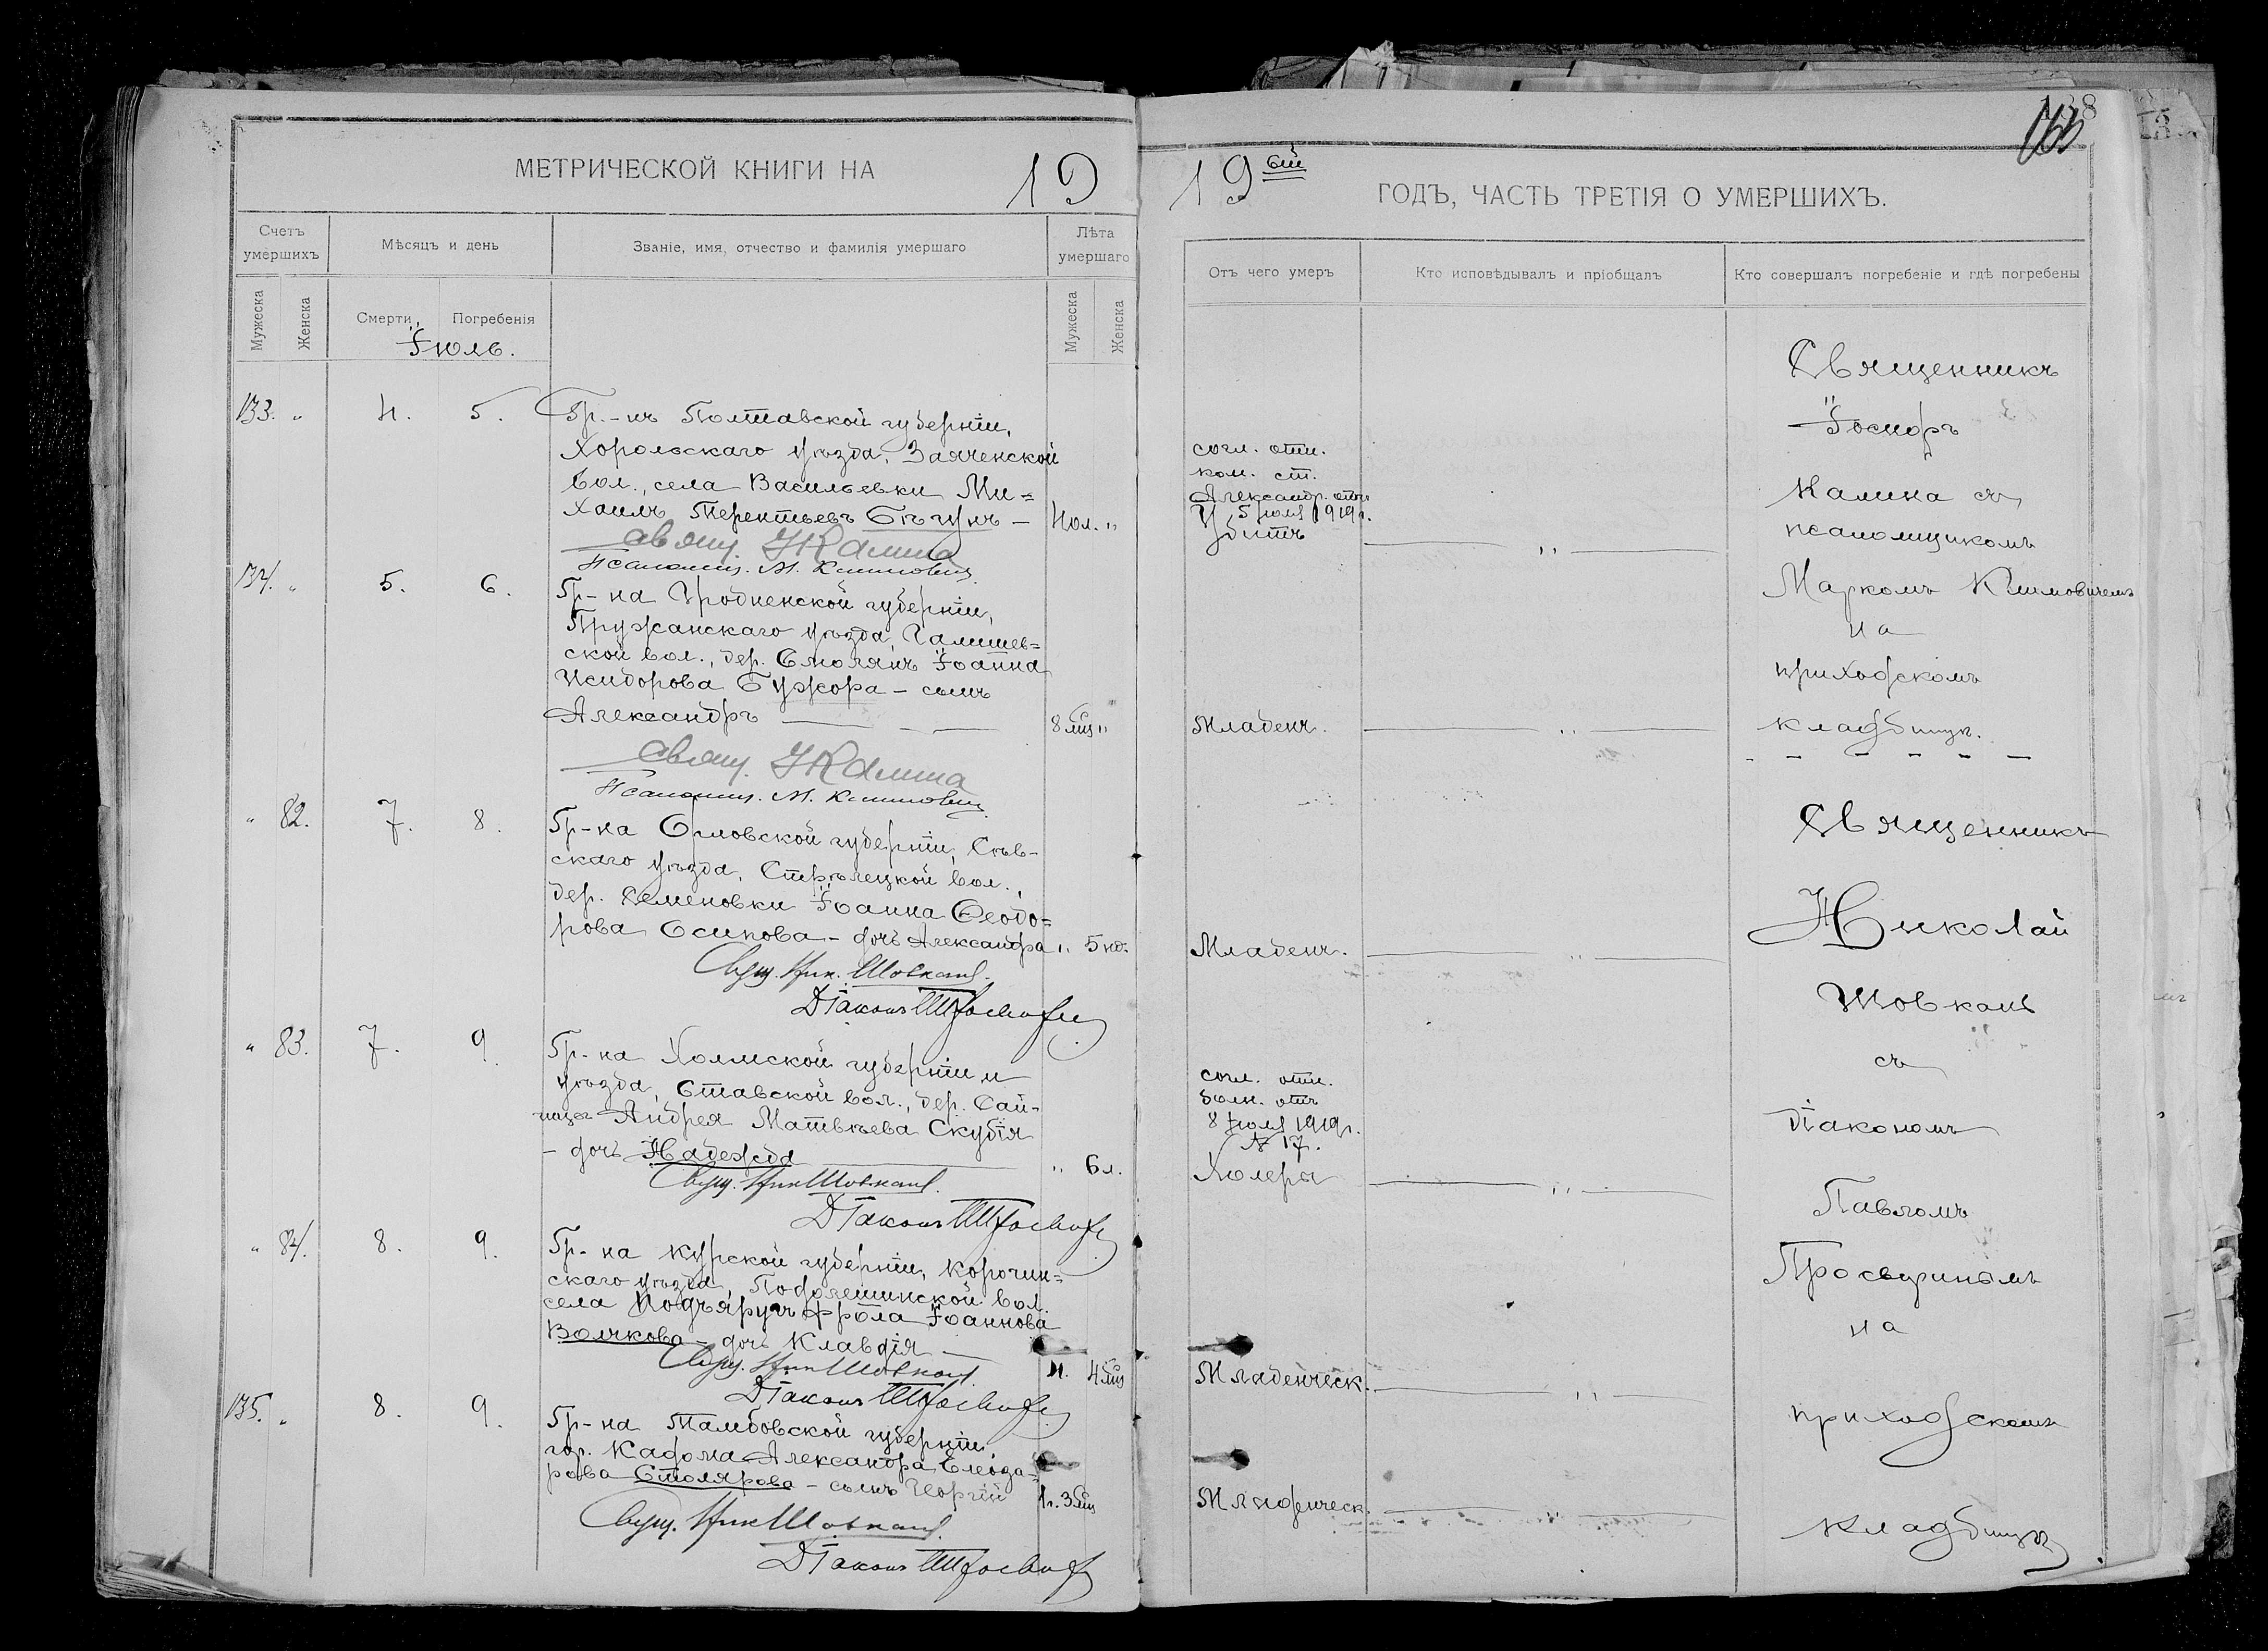 МЕТРИЧЕСКОЙ КНИГИ НА 19
Счетъ умершихъ
Мѣсяцъ и день
Званіе, имя, отчество и фамилія умершаго
Лѣта умершаго
Мужеска
Женска
Смерти
Погребенія
Мужеска
Женска
Іюль.
133. " 4. 5. Гр.-нъ Полтавской губерніи,
Хорольскаго уѣзда, Заяченской
вол., села Васильевки Ми=
хаилъ Терентьевъ Бѣгунъ — 40л. "
Свящ. І Калина
Псаломщ. М. Климовичъ
134. " 5. 6. Гр-на Гродненской губерніи,
Пружанскаго уѣзда,
ской вол., дер. Смолянъ Іоанна
Исидорова Бужора – сынъ
Александръ — 8 мѣс "
Свящ. І Калина
Псаломщ. М. Климовичъ
" 82. 7. 8. Гр-на Орловской губерніи, Сѣв-
скаго уѣзда, Стрѣлецкой вол.,
дер. Семеновки Іоанна Ѳеодо=
рова Осипова – дочь Александра " 5 нд.
Свящ. Ник. Шовкань
Діаконъ
" 83. 7. 9. Гр-на Холмской губерніи и
уѣзда, Ставской вол., дер. Сай-
Андрея Матвѣева Скубія
– дочь Надежда " 6 л.
Свящ. Ник Шовкань
Діаконъ
" 84. 8. 9. Гр-на Курской губерніи, Корочан=
скаго уѣзда, вол.
села Подъяругъ Фрола Іоаннова
Волчкова – дочь Клавдія — 4 мѣс
Свящ. Ник Шовкань
Діаконъ
135. " 8. 9. Гр-на Тамбовской губерніи,
гор. Кадома Александра Елеоза-
рова Столярова – сынъ Георгій 1г. 3 мѣс
Свящ. Ник Шовкань
Діаконъ
19 ый ГОДЪ, ЧАСТЬ ТРЕТІЯ О УМЕРШИХЪ.
Отъ чего умеръ
Кто исповѣдывалъ и пріобщалъ
Кто совершалъ погребеніе и гдѣ погребены
согл. отн.
ком. ст.
Александр. отъ
5 Іюля 1919г.
Убитъ
Младенч.
Младенч.
согл. отн.
болн. отъ
8 Іюля 1919г.
№ 17.
Холеры
Младенческ.
Младенческ.
Священникъ
Іосифъ
Калина съ
псаломщикомъ
Маркомъ Климовичемъ
на
приходскомъ
кладбищѣ.
Священникъ
Николай
Шовкань
съ
діакономъ
Павломъ
Просвиринымъ
на
приходскомъ
кладбищѣ